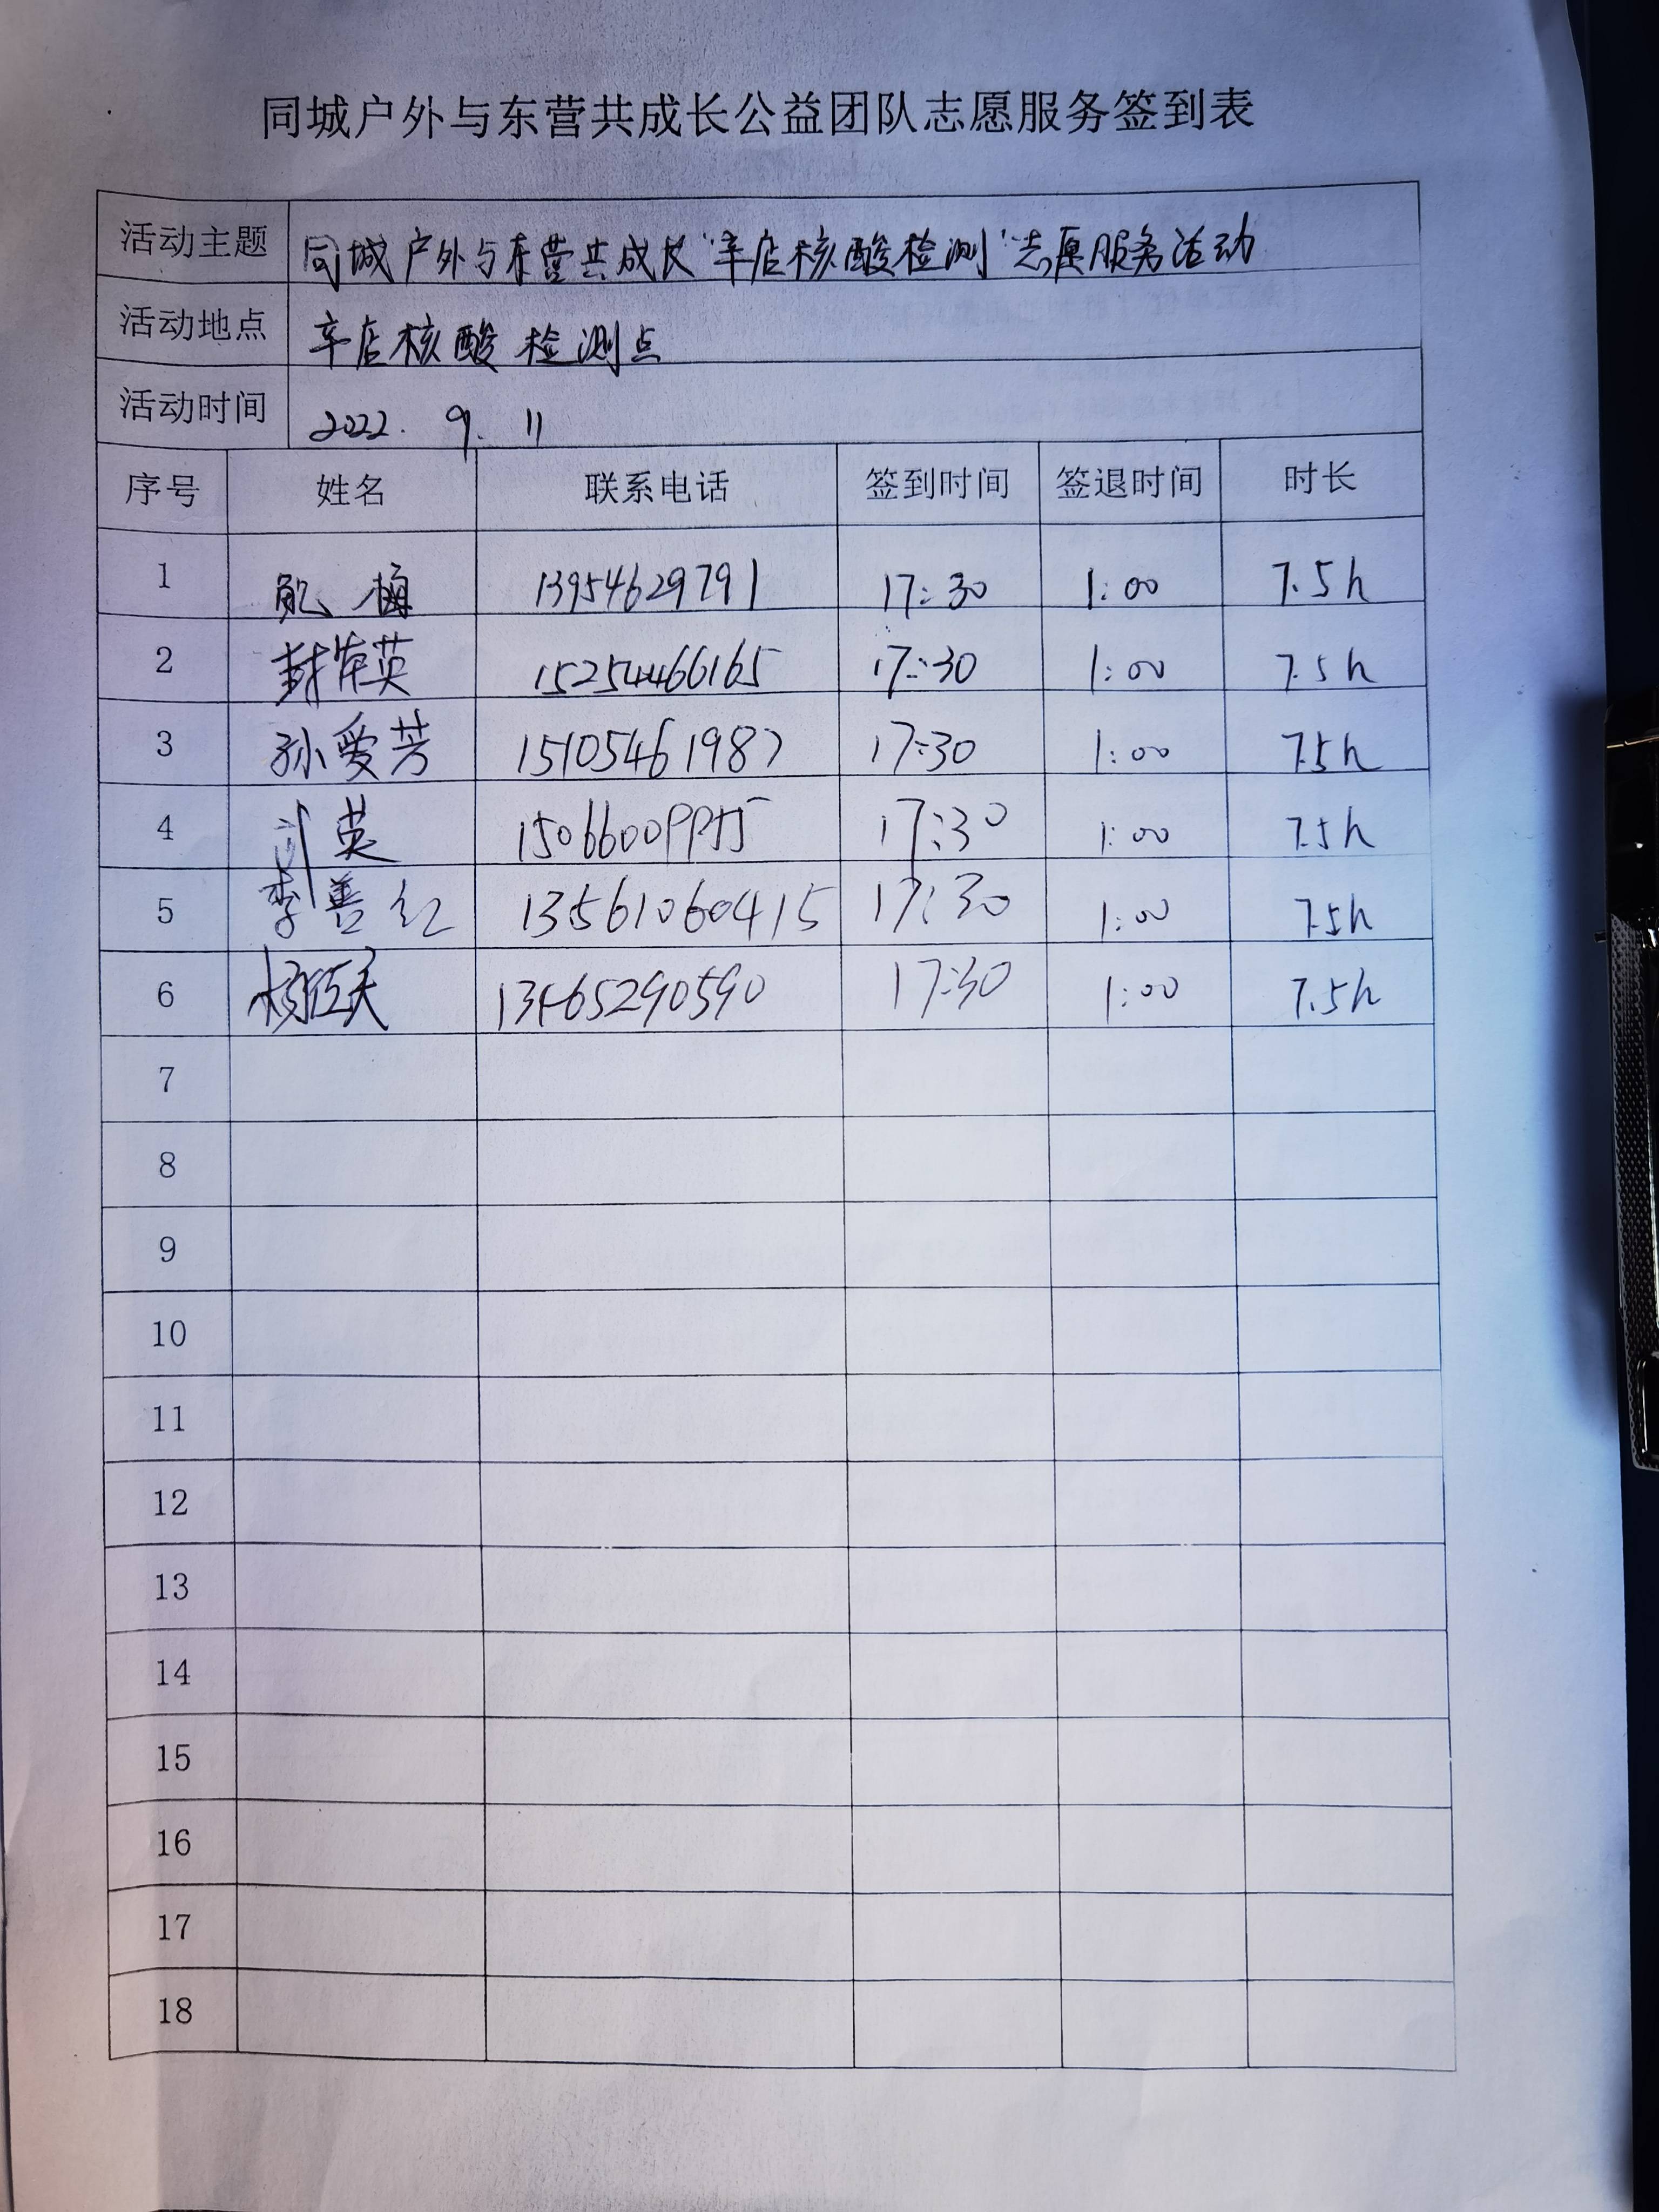 同城户外与东营共成长公益团队志愿服务签到表
活动主题 同城户外与东营共成长“辛店核酸检测”志愿服务活动
活动地点 辛店核酸检测点
活动时间 2022. 9. 11
序号 姓名 联系电话 签到时间 签退时间 时长
1 梅 13954629791 17:30 1:00 7.5h
2 英 15254466165 17:30 1:00 7.5h
3 孙爱芳 15105461987 17:30 1:00 7.5h
4 英 17:30 1:00 7.5h
5 李善红 13561060415 17:30 1:00 7.5h
6 杨 13465290590 17:30 1:00 7.5h
7
8
9
10
11
12
13
14
15
16
17
18